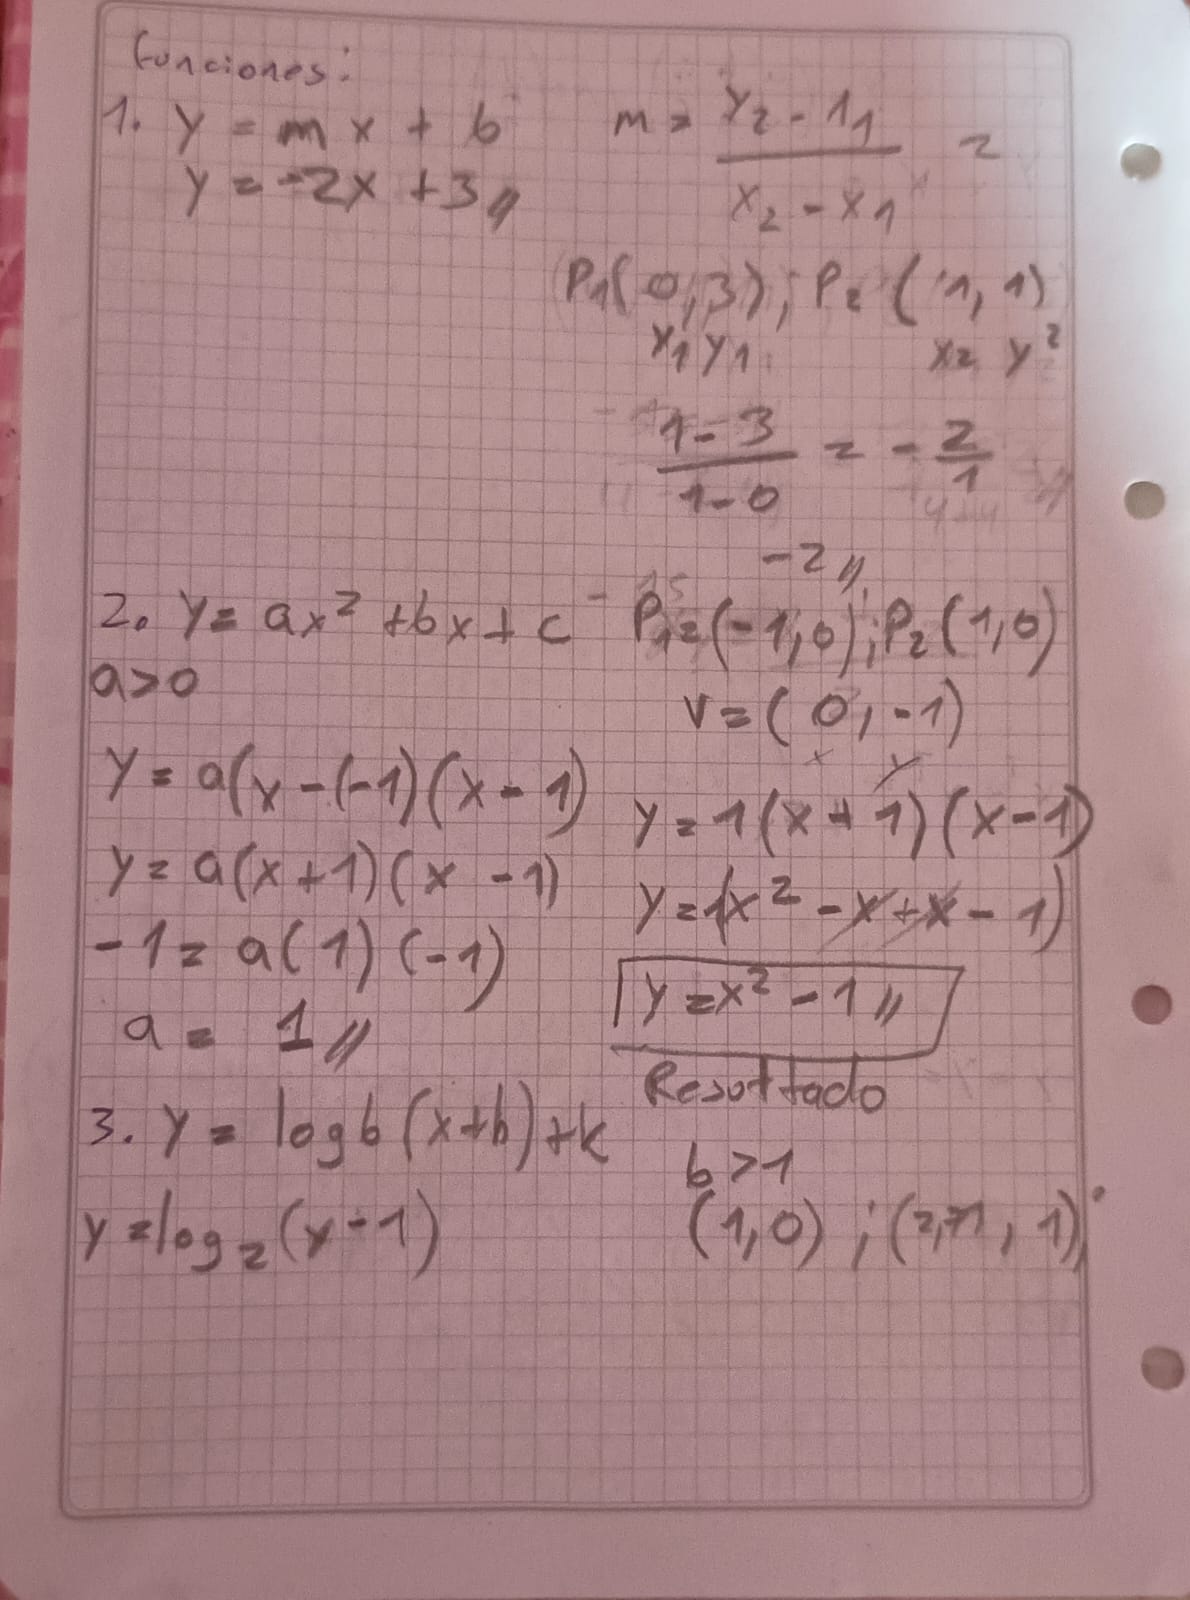 Funciones:
1. y = mx + b
y = -2x + 3 //
m = y2 - 11 / x2 - x1 =
P1(0,3); P2(1,1)
x1 y1 x2 y2
1-3 / 1-0 = - 2/1
-2 //
2. y = ax² + bx + c
P1=(-1,0); P2(1,0)
a>0
v = (0,-1)
x y
y = a(x-(-1)(x-1)
y = a(x+1)(x-1)
-1 = a(1)(-1)
a = 1 //
y = 1(x+1)(x-1)
y = 1(x² - x + x - 1)
y = x² - 1 //
Resultado
3. y = logb(x+h)+k
y = log2(x-1)
b>1
(1,0) ; (2,71, 1)